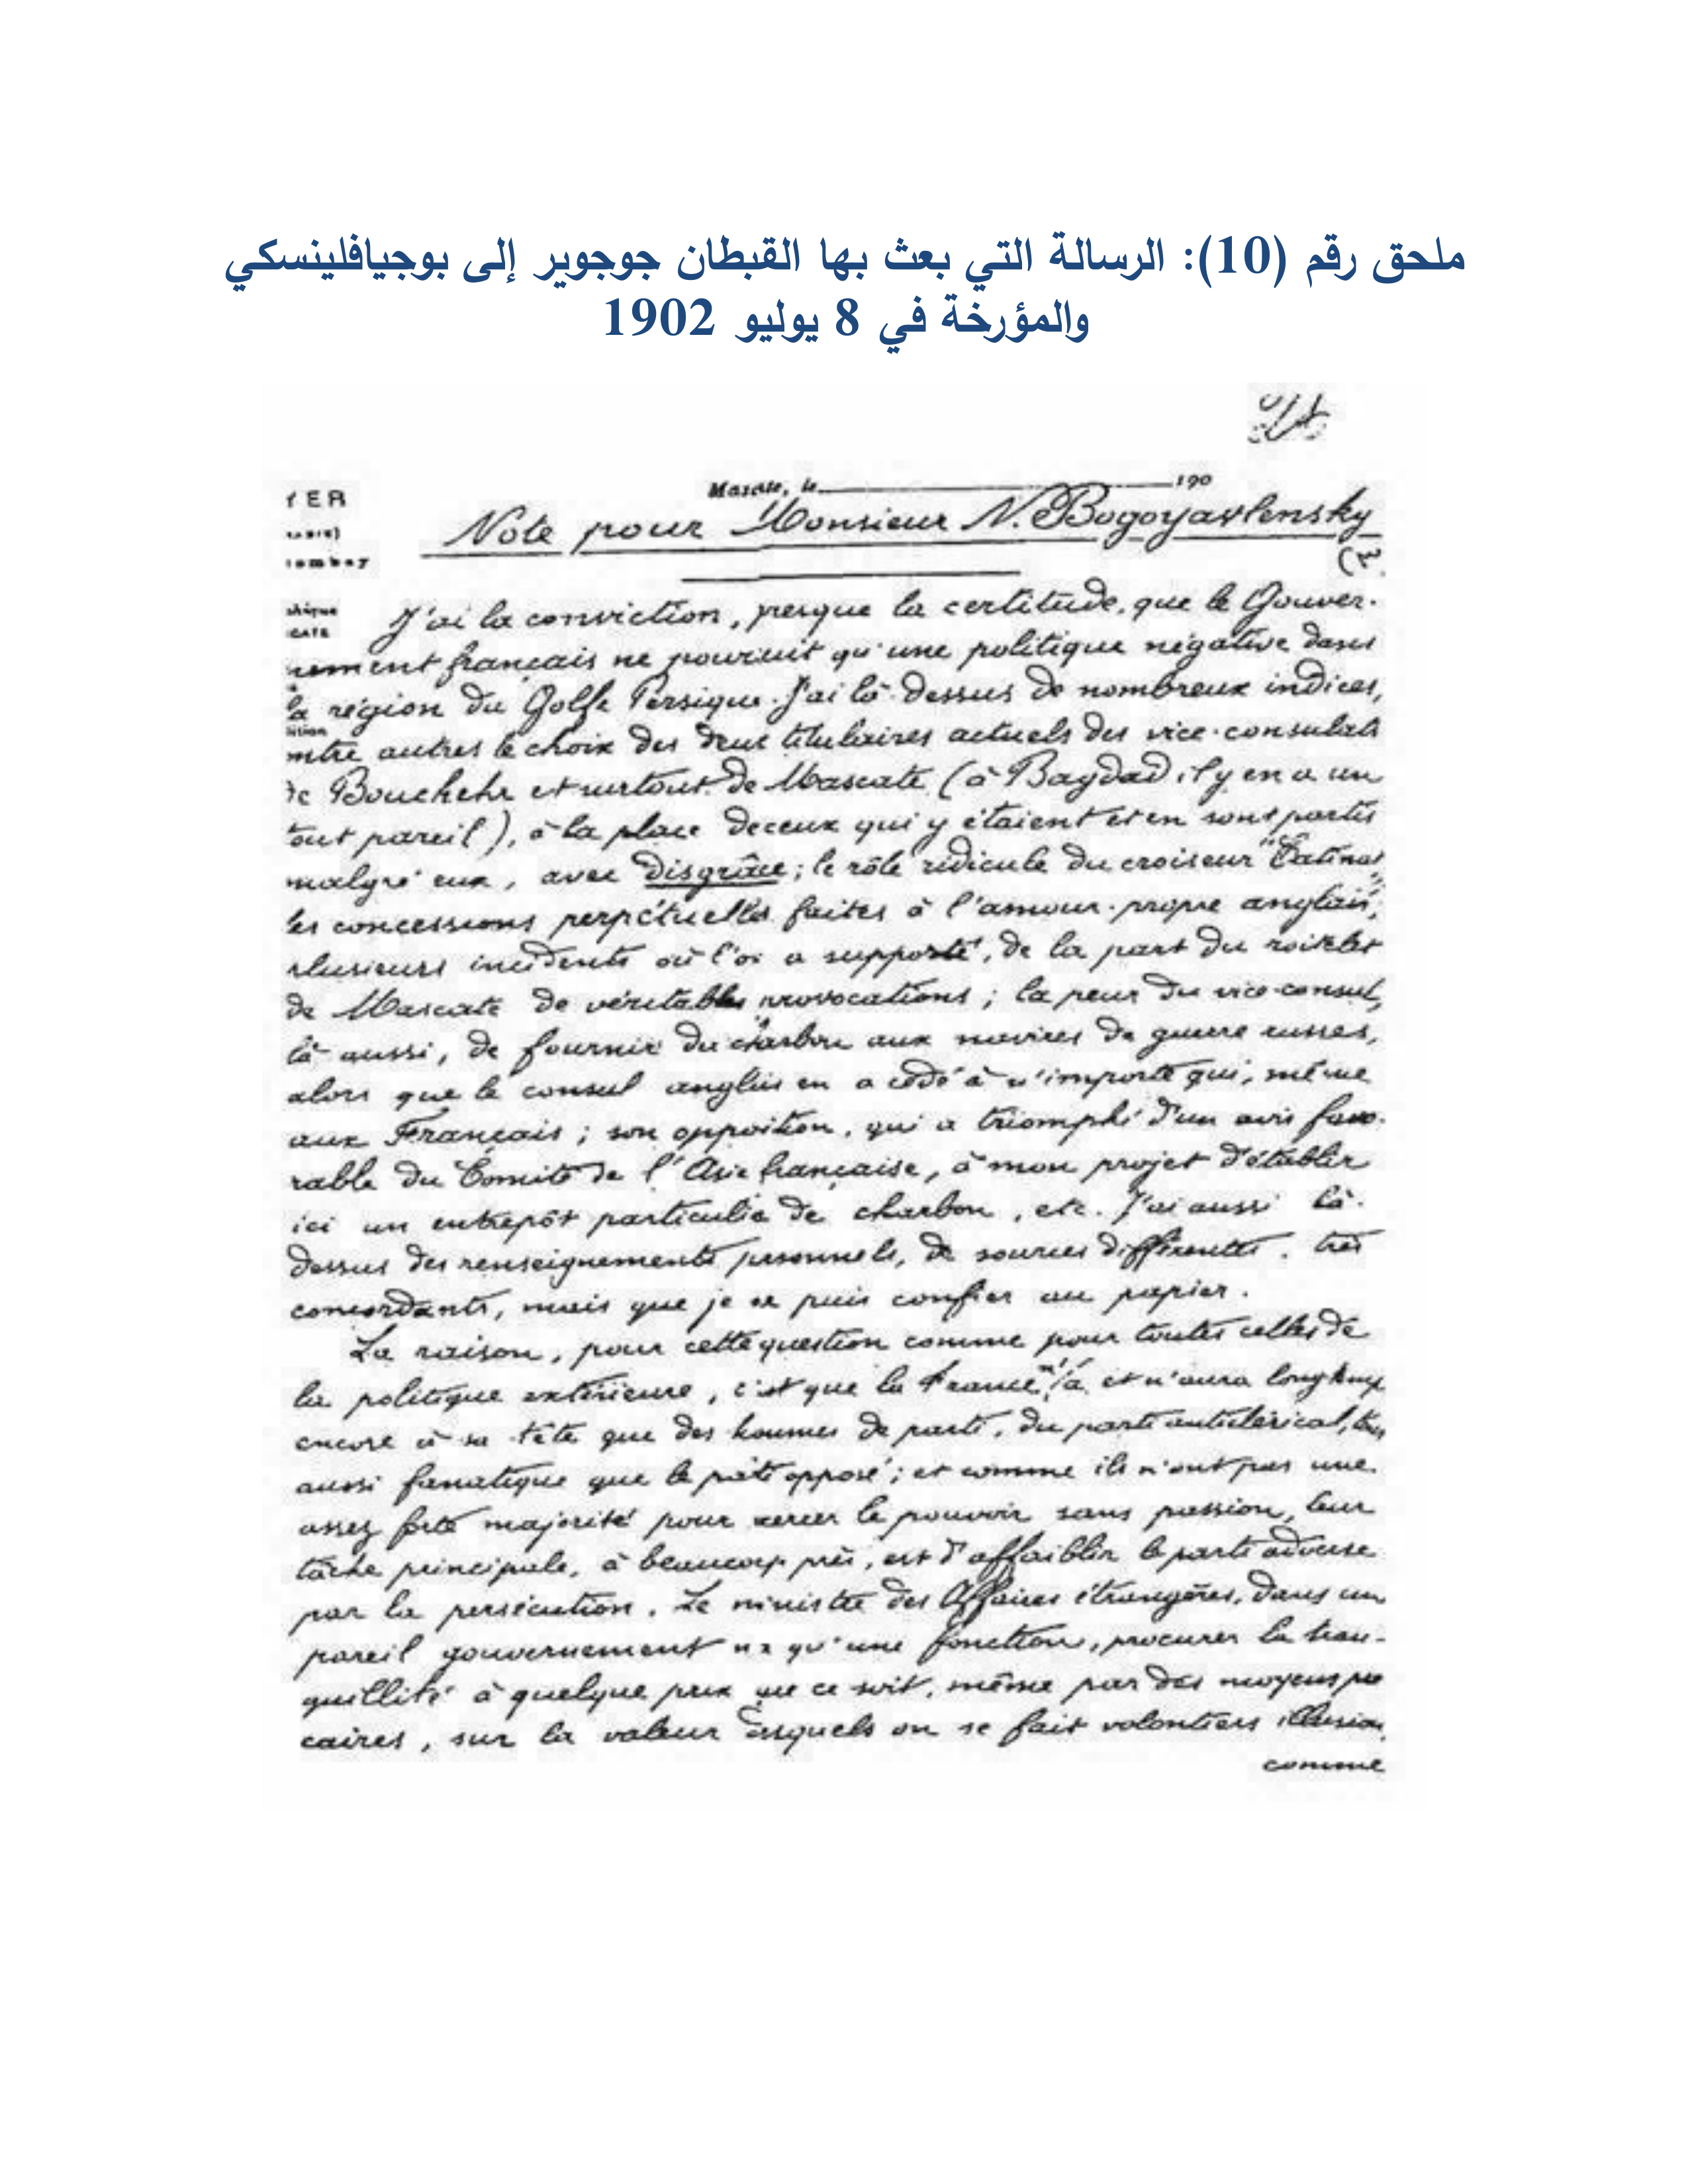 ملحق رقم (10): الرسالة التي بعث بها القبطان جوجوير إلى بوجيافلينسكي
والمؤرخة في 8 يوليو 1902
Mascate, le 190
YER
Note pour Monsieur N. Bogoyavlensky
J'ai la conviction, presque la certitude, que le Gouver-
nement français ne poursuit qu'une politique négative dans
la région du Golfe Persique. J'ai là-dessus de nombreux indices,
entre autres le choix des deux titulaires actuels des vice-consulats
de Bouchehr et surtout de Mascate (à Bagdad il y en a un
tout pareil), à la place de ceux qui y étaient et en sont partis
malgré eux, avec disgrâce ; le rôle ridicule du croiseur "Catinat"
les concessions perpétuelles faites à l'amour-propre anglais,
plusieurs incidents où l'on a supporté, de la part du roitelet
de Mascate de véritables provocations ; la peur du vice-consul,
là aussi, de fournir du charbon aux navires de guerre russes,
alors que le consul anglais en a cédé à n'importe qui, même
aux Français ; son opposition, qui a triomphé d'un avis favo-
rable du Comité de l'Asie française, à mon projet d'établir
ici un entrepôt particulier de charbon, etc. J'ai aussi là-
dessus des renseignements personnels, de sources différentes, très
concordants, mais que je ne puis confier au papier.
La raison, pour cette question comme pour toutes celles de
la politique extérieure, c'est que la France n'a et n'aura longtemps
encore à sa tête que des hommes de parti, du parti anticlérical,
aussi fanatique que le parti opposé ; et comme ils n'ont pas une
assez forte majorité pour exercer le pouvoir sans passion, leur
tâche principale, à beaucoup près, est d'affaiblir le parti adverse
par la persécution. Le ministre des Affaires étrangères, dans un
pareil gouvernement n'a qu'une fonction, procurer la tran-
quillité à quelque prix que ce soit, même par des moyens pré
caires, sur la valeur desquels on se fait volontiers illusion,
comme